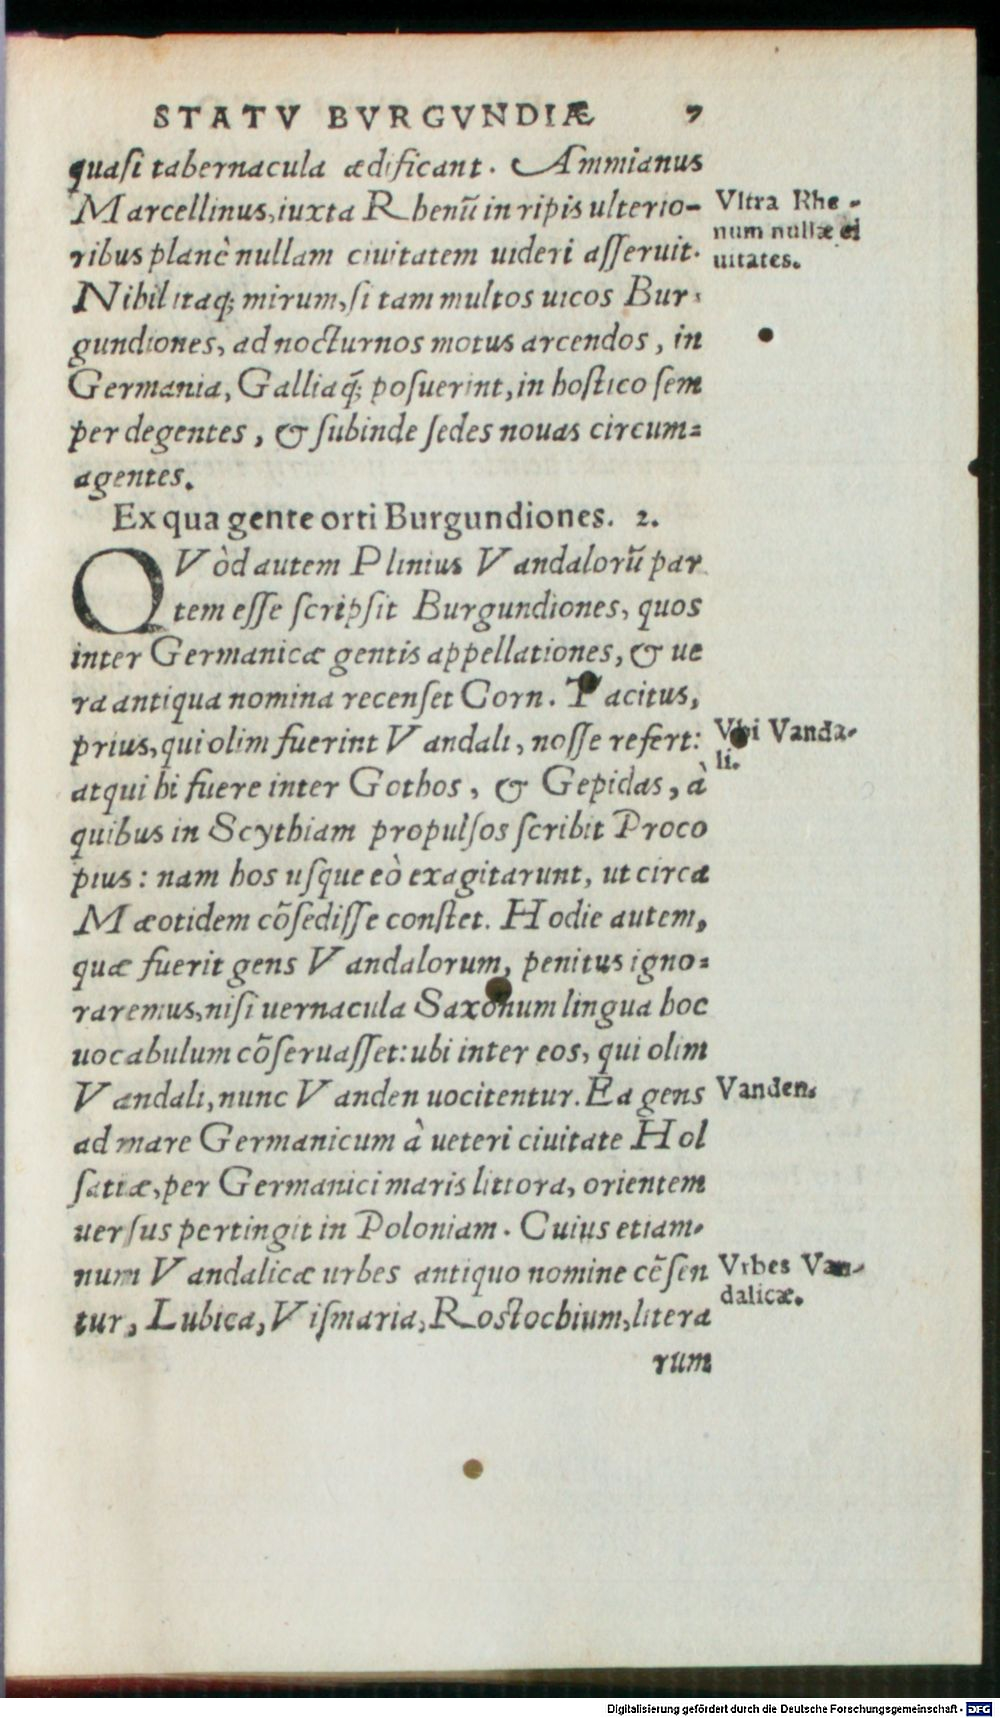 STATV BVRGVNDIÆ 7
quasi tabernacula ædificant. Ammianus
Marcellinus, iuxta Rhenū in ripis ulterio-
ribus planè nullam ciuitatem uideri asseruit.
Nihil itaq; mirum, si tam multos uicos Bur-
gundiones, ad nocturnos motus arcendos, in
Germania, Galliaq́; posuerint, in hostico sem
per degentes, & subinde sedes nouas circum=
agentes.
Vltra Rhe-
num nullæ ci
uitates.
Ex qua gente orti Burgundiones. 2.
QVòd autem Plinius Vandalorū par
tem esse scripsit Burgundiones, quos
inter Germanicæ gentis appellationes, & ue
ra antiqua nomina recenset Corn. Tacitus,
prius, qui olim fuerint Vandali, nosse refert:
atqui hi fuere inter Gothos, & Gepidas, à
quibus in Scythiam propulsos scribit Proco
pius: nam hos usque eò exagitarunt, ut circa
Mæotidem cōsedisse constet. Hodie autem,
quæ fuerit gens Vandalorum, penitus igno=
raremus, nisi uernacula Saxonum lingua hoc
uocabulum cōseruasset: ubi inter eos, qui olim
Vandali, nunc Vanden uocitentur. Ea gens
ad mare Germanicum à ueteri ciuitate Hol
satiæ, per Germanici maris littora, orientem
uersus pertingit in Poloniam. Cuius etiam-
num Vandalicæ urbes antiquo nomine cēsen
tur, Lubica, Vismaria, Rostochium, litera
rum
Vbi Vanda-
li.
Vanden.
Vrbes Van-
dalicæ.
Digitalisierung gefördert durch die Deutsche Forschungsgemeinschaft - DFG